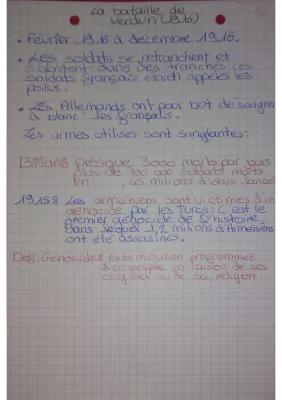 La bataille de
Verdun (1916)
• Février 1916 à décembre 1916.
• Les soldats se retranchent et
s'abritent dans des tranchées les
soldats français étaient appelés les
poilus.
• Les Allemands ont pour but de saigné
à blanc les français.
Les armes utilisés sont sanglantes:
Bilans presque 3000 morts par jours
plus de 700 000 soldats morts
en , 45 milions d'obus lancé
1915 Les arméniens sont victimes d'un
génocide par les Turcs: C'est le
premier génocide de l'histoire,
Dans lequel 1,2 milions d'Arméniens
ont été assasinés.
Def: Génocide: extermination programmée
d'un peuple en raison de ses
origines ou de sa religion